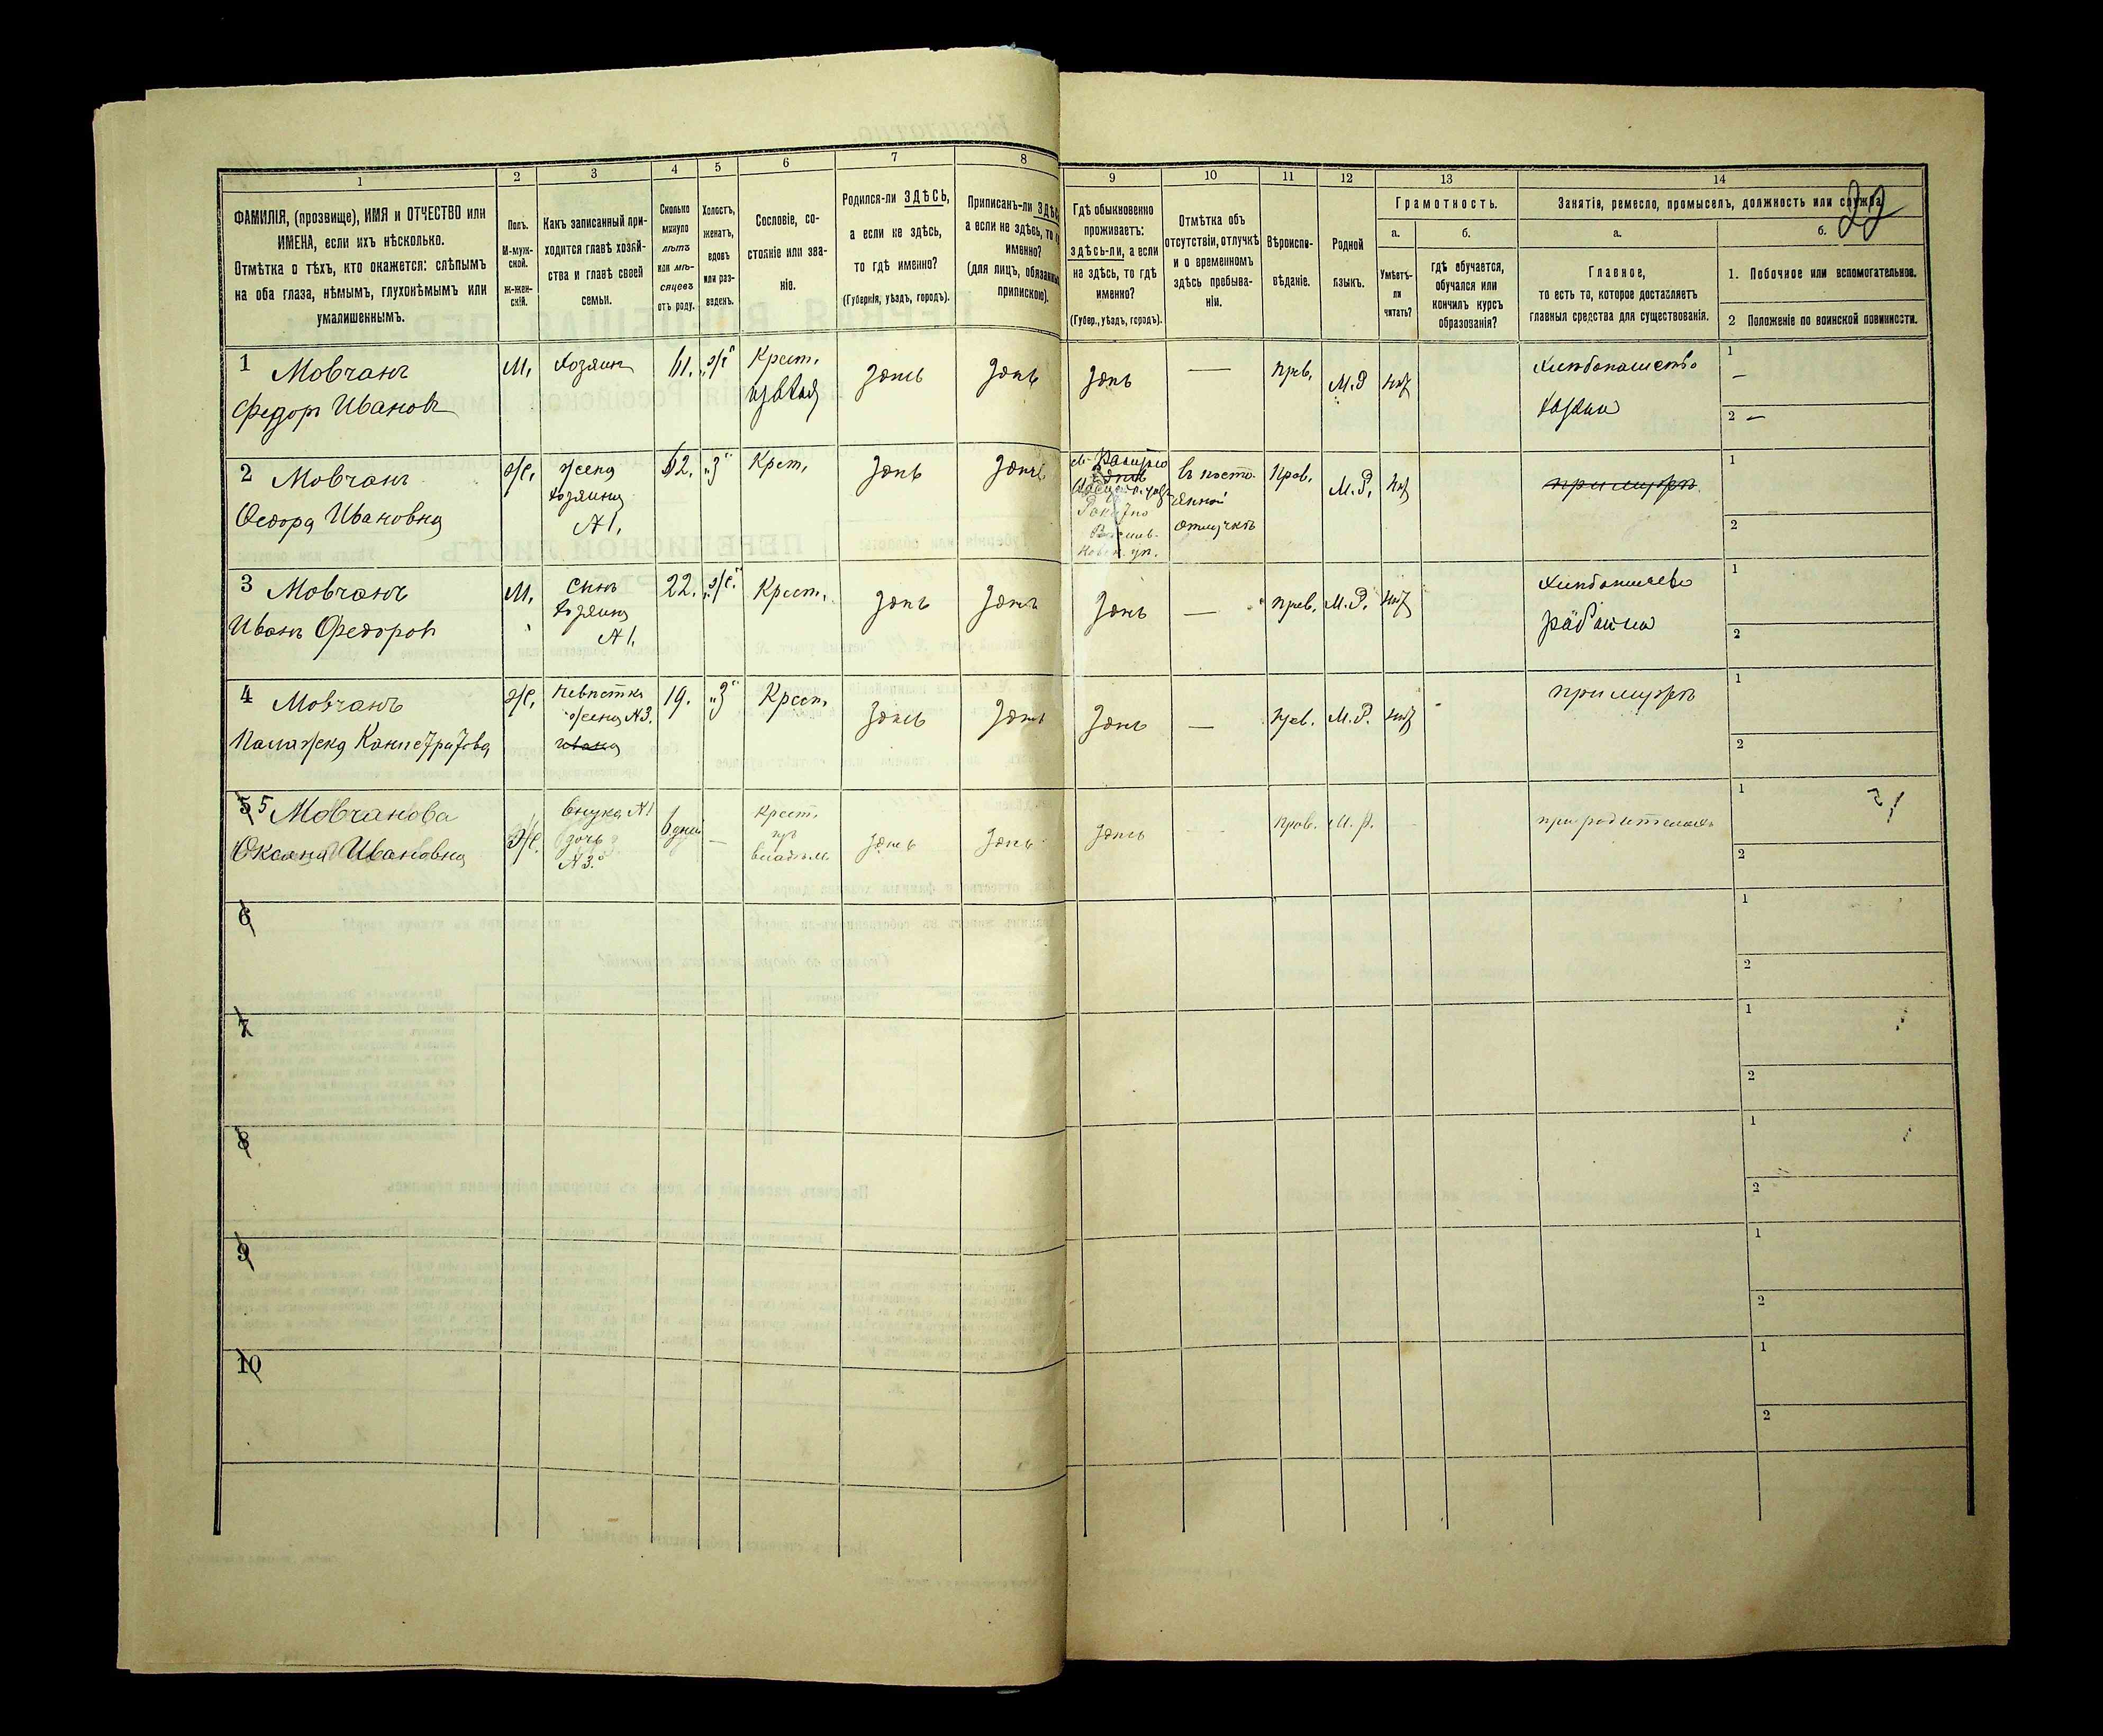 22
1 2 3 4 5 6 7 8 9 10 11 12 13 14
ФАМИЛІЯ, (прозвище), ИМЯ и ОТЧЕСТВО или
ИМЕНА, если ихъ нѣсколько.
Отмѣтка о тѣхъ, кто окажется: слѣпымъ
на оба глаза, нѣмымъ, глухонѣмымъ или
умалишеннымъ.
Полъ.
М-муж-
ской.
Ж-жен-
скій.
Какъ записанный при-
ходится главѣ хозяй-
ства и главѣ своей
семьи.
Сколько
минуло
лѣтъ
или мѣ-
сяцевъ
отъ роду.
Холостъ,
женатъ,
вдовъ
или раз-
веденъ.
Сословіе, со-
стояніе или зва-
ніе.
Родился-ли ЗДѢСЬ,
а если не здѣсь,
то гдѣ именно?
(Губернія, уѣздъ, городъ).
Приписанъ-ли ЗДѢСЬ,
а если не здѣсь, то гдѣ
именно?
(для лицъ, обязанныхъ
припискою).
Гдѣ обыкновенно
проживаетъ:
здѣсь-ли, а если
не здѣсь, то гдѣ
именно?
(Губер., уѣздъ, городъ).
Отмѣтка объ
отсутствіи, отлучкѣ
и о временномъ
здѣсь пребыва-
ніи.
Вѣроиспо-
вѣданіе.
Родной
языкъ.
Грамотность.
а.
Умѣетъ-
ли
читать?
б.
гдѣ обучается,
обучался или
кончилъ курсъ
образованія?
Занятіе, ремесло, промыселъ, должность или служба.
а.
Главное,
то есть то, которое доставляетъ
главныя средства для существованія.
б.
1. Побочное или вспомогательное.
2 Положеніе по воинской повинности.
1 Мовчанъ М. Хозяинъ 61. „ж“ Крест. здѣсь здѣсь здѣсь — прав. М.Р нѣт Хлѣбопашество 1 —
Федоръ Ивановъ хозяин 2 —
2 Мовчанъ ж. жена 62. „з“ Крест. здѣсь здѣсь въ посто- Прав. М.Р. нѣт при мужѣ 1
Ѳедора Ивановна хозяина янной 2
№1. отлучкѣ
3 Мовчанъ М. сынъ 22. „ж“ Крест. здѣсь здѣсь здѣсь — прав. М.Р. нѣт 1
Иванъ Федоров хозяина 2
№1.
4 Мовчанъ ж. невѣстка 19. „з“ Крест. здѣсь здѣсь здѣсь — Прав. М.Р. нѣт при мужѣ 1
жена №3. 2
5 5 Мовчанова ж. внука №1 6 дней — крест. здѣсь здѣсь здѣсь — прав. М.Р. - при родителяхъ 1
Оксана Ивановна дочь 2
№3.
6 1
2
7 1
2
8 1
2
9 1
2
10 1
2